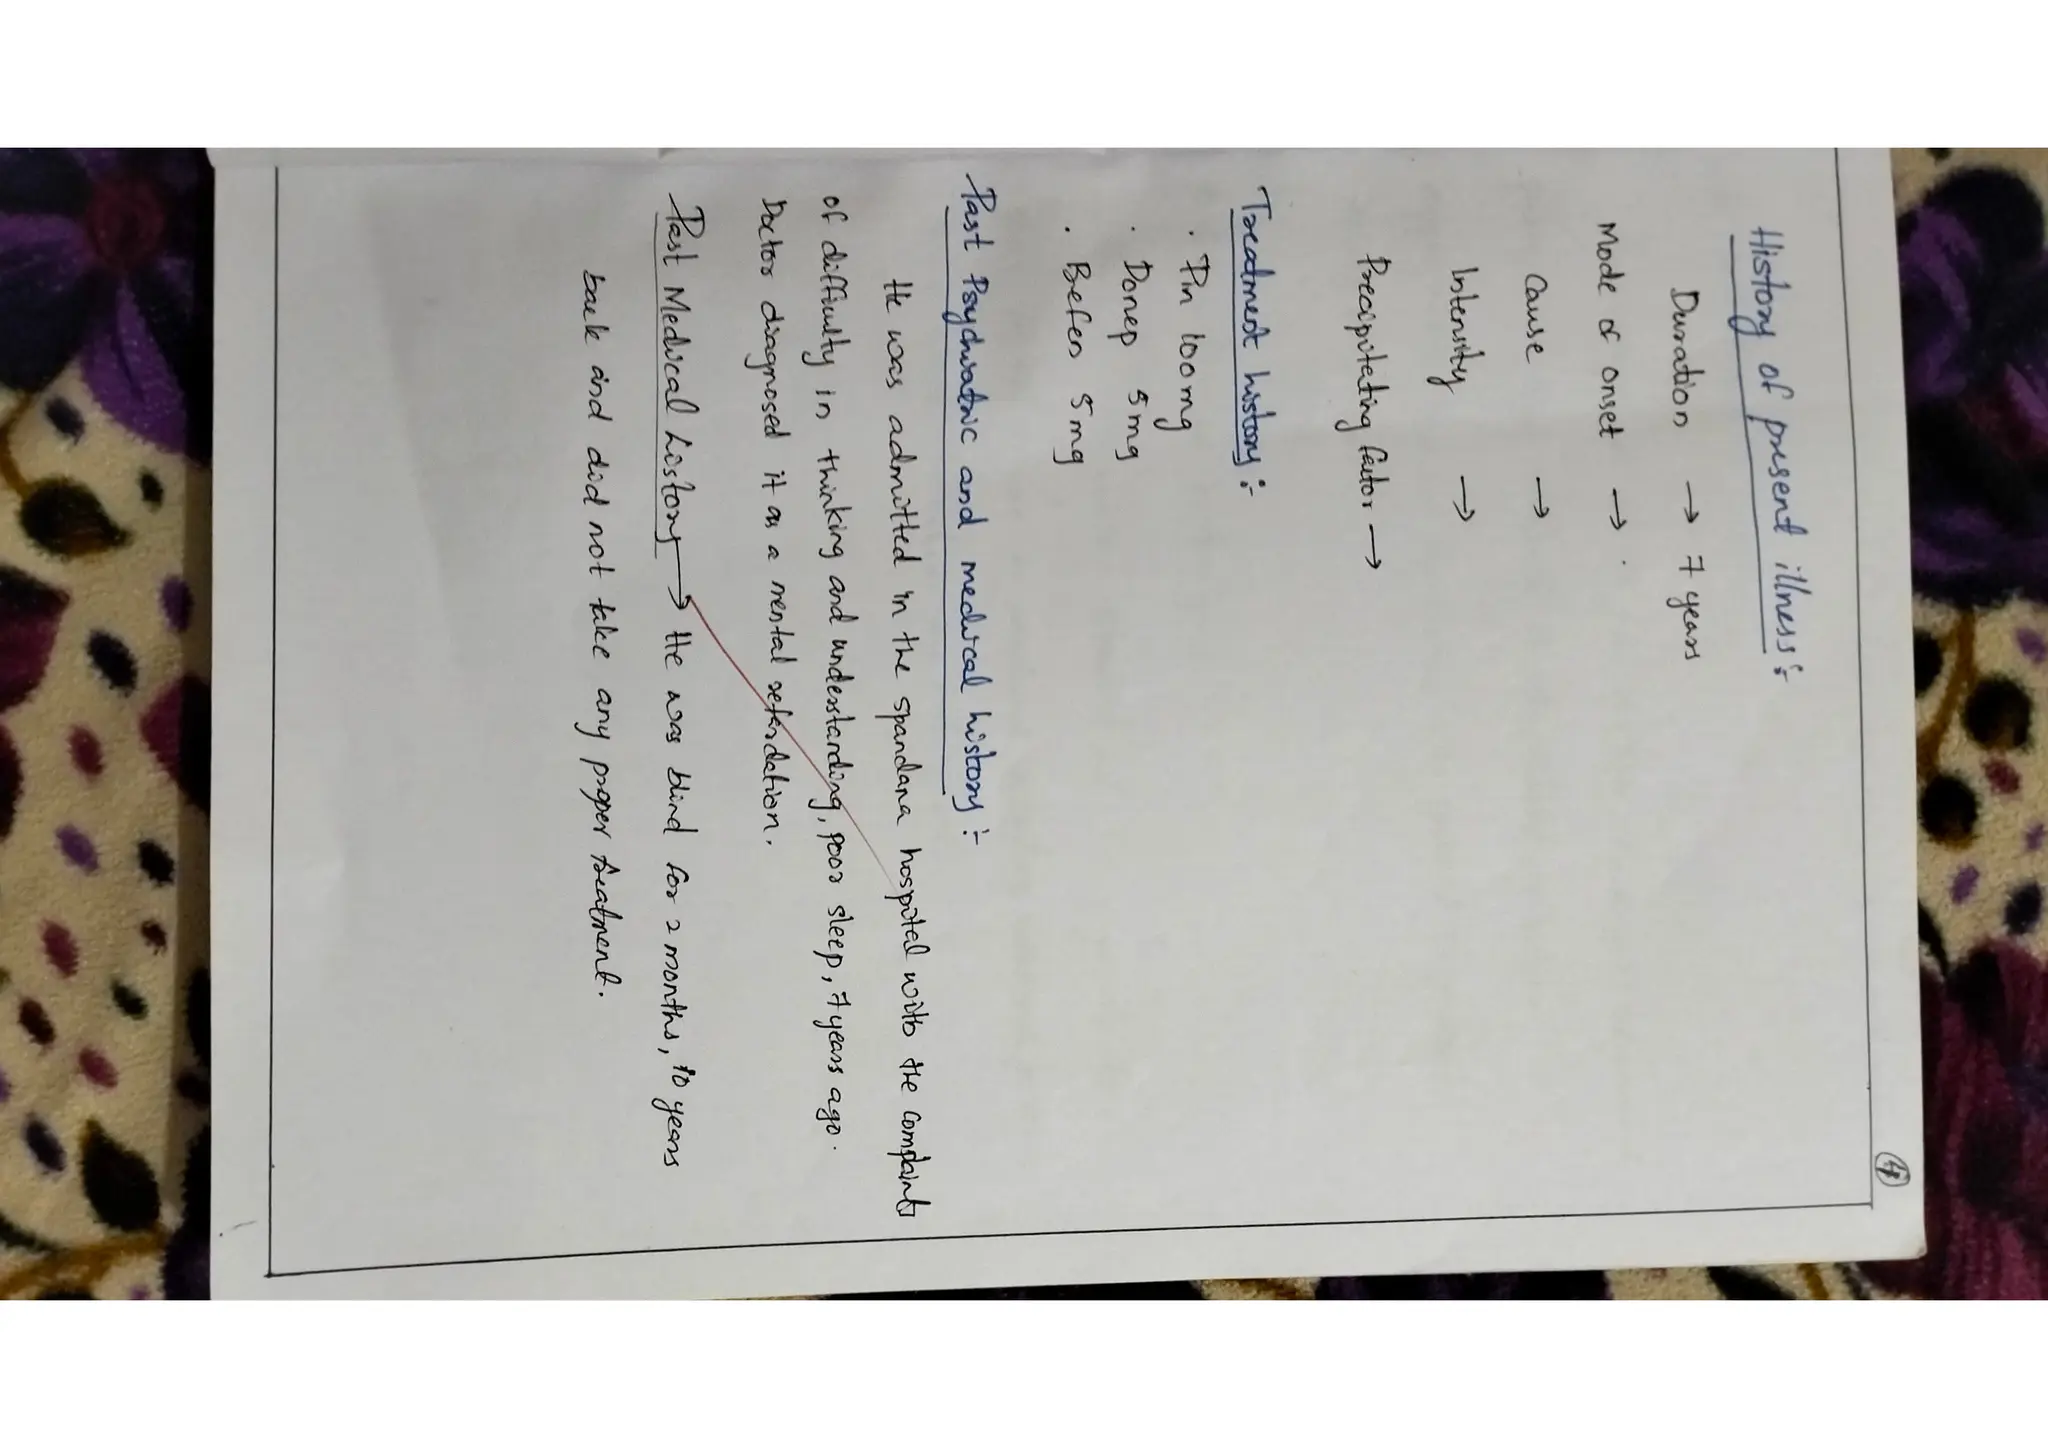 4
History of present illness:-
Duration → 7 years
Mode of onset → .
Cause →
Intensity →
Precipitating factor →
Treatment history:-
. Pin 100mg
. Donep 5mg
. Befen 5mg
Past Psychiatric and medical history:-
He was admitted in the spandana hospital with the complaints
of difficulty in thinking and understanding, poor sleep, 7 years ago.
Doctor diagnosed it as a mental retardation.
Past Medical history → He was blind for 2 months, 10 years
back and did not take any proper treatment.